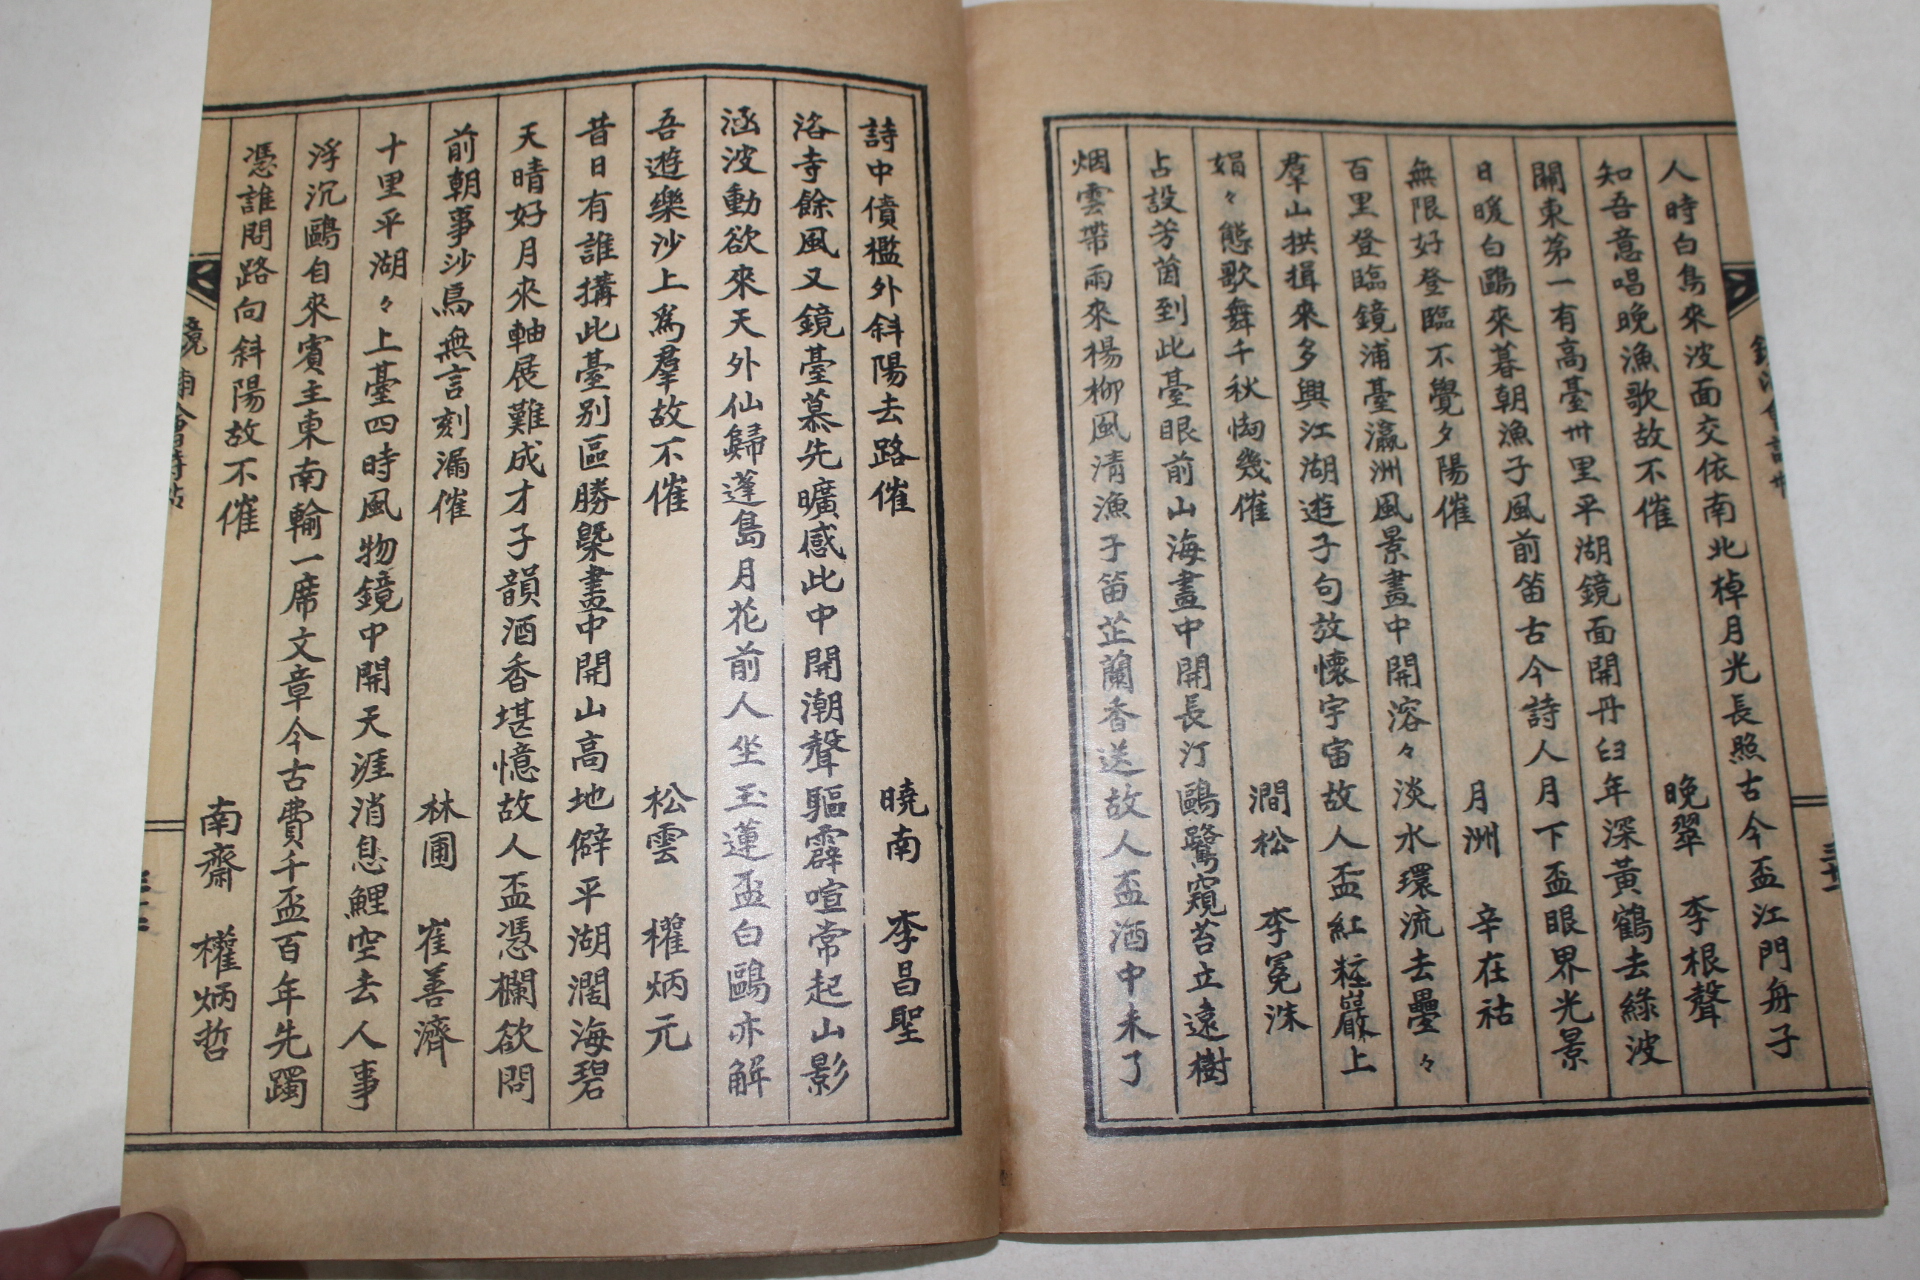 人時白鳥來波面交依南北棹月光長照古今盃江門舟子
知吾意唱晚漁歌故不催 晚翠 李根聲
關東第一有高臺卅里平湖鏡面開丹臼年深黃鶴去綠波
日暖白鷗來暮朝漁子風前笛古今詩人月下盃眼界光景
無限好登臨不覺夕陽催 月洲 辛在祜
百里登臨鏡浦臺瀛洲風景畫中開溶々淡水環流去疊々
羣山拱揖來多興江湖遊子句放懷宇宙故人盃紅粧巖上
娟々態歌舞千秋幾催 澗松 李冕洙
占設芳茵到此臺眼前山海畫中開長汀鷗鷺窺苔立遠樹
烟雲帶雨來楊柳風清漁子笛芷蘭香送故人盃酒中未了
詩中債檻外斜陽去路催 曉南 李昌聖
洛寺餘風又鏡臺慕先曠感此中開潮聲驅霹喧常起山影
涵波動欲來天外仙歸蓬島月花前人坐玉蓮盃白鷗亦解
吾遊樂沙上爲羣故不催 松雲 權炳元
昔日有誰搆此臺別區勝槩畫中開山高地僻平湖濶海碧
天晴好月來軸展難成才子韻酒香堪憶故人盃憑欄欲問
前朝事沙鳥無言刻漏催 林圃 崔善濟
十里平湖々上臺四時風物鏡中開天涯消息鯉空去人事
浮沉鷗自來賓主東南輸一席文章今古費千盃百年先躅
憑誰問路向斜陽故不催 南齋 權炳哲